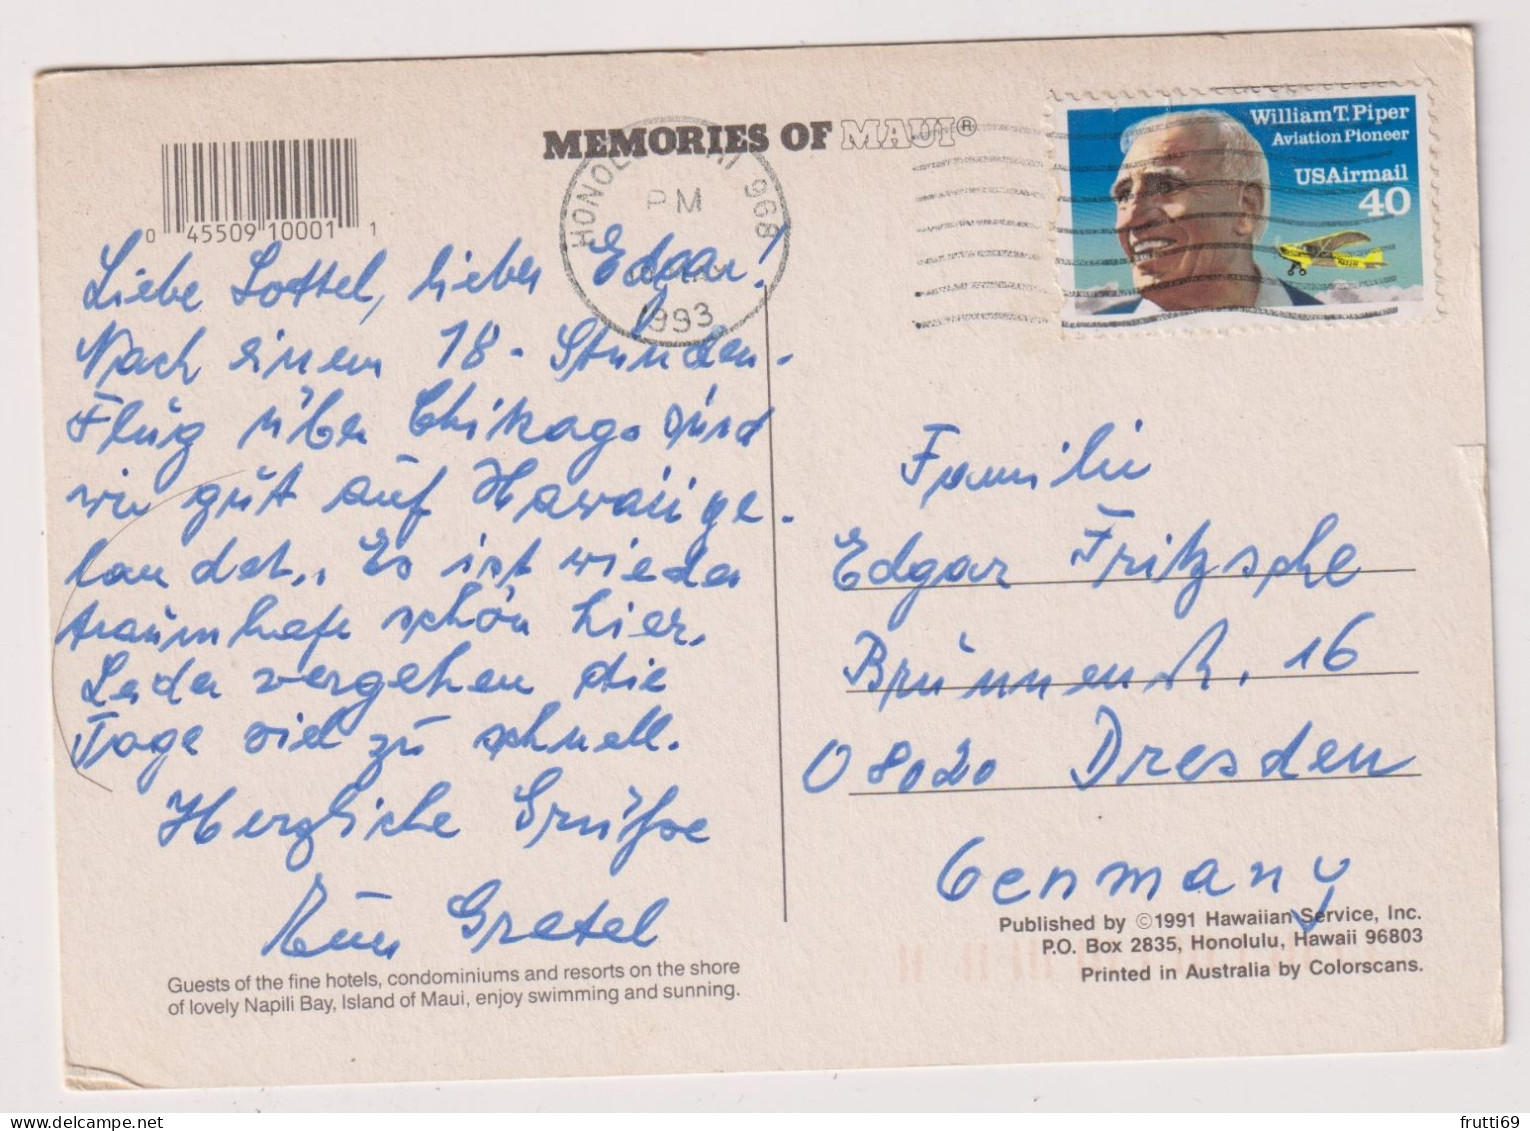 MEMORIES OF MAUI®
0 45509 10001 1
HONOLULU HI 968
PM
1993
William T. Piper
Aviation Pioneer
USAirmail
40
Liebe Lottel, lieber Edgar!
Nach einem 18-Stunden-
Flug über Chikago sind
wir gut auf Hawaii ge-
landet. Es ist wieder
traumhaft schön hier.
Leider vergehen die
Tage viel zu schnell.
Herzliche Grüße
Eure Gretel
Guests of the fine hotels, condominiums and resorts on the shore
of lovely Napili Bay, Island of Maui, enjoy swimming and sunning.
Familie
Edgar Fritzsche
Brünnen 16
08020 Dresden
Germany
Published by ©1991 Hawaiian Service, Inc.
P.O. Box 2835, Honolulu, Hawaii 96803
Printed in Australia by Colorscans.
frutti69